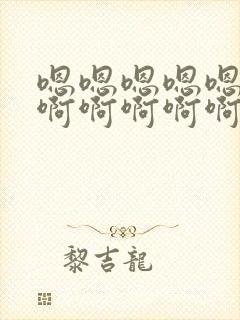 嗯嗯嗯嗯嗯
啊啊啊啊啊
黎吉龍